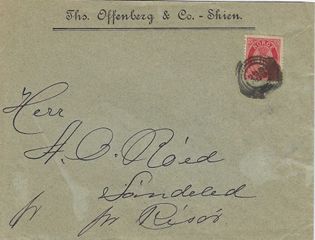 Ths. Offenberg & Co. - Skien.
NORGE
Herr
A. O. Röed
Söndeled
pr pr Risör